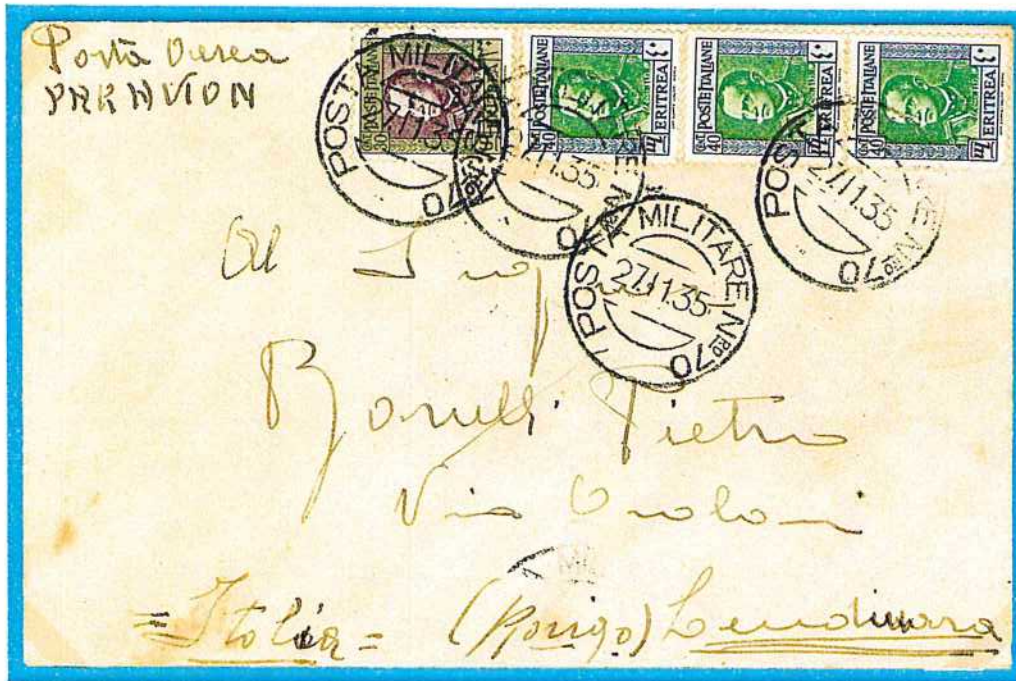 Posta Aerea
PAR AVION
POSTE ITALIANE
Cent 30
POSTE ITALIANE
Cent 40
ERITREA
POSTE ITALIANE
Cent 40
ERITREA
POSTE ITALIANE
Cent 40
ERITREA
POSTA MILITARE NRO 70
27.11.35
POSTA MILITARE NRO 70
27.11.35
POSTA MILITARE NRO 70
27.11.35
POSTA MILITARE NRO 70
27.11.35
Al Sig
Pietro
Via
A MI
= Italia = (Rovigo) Lendinara